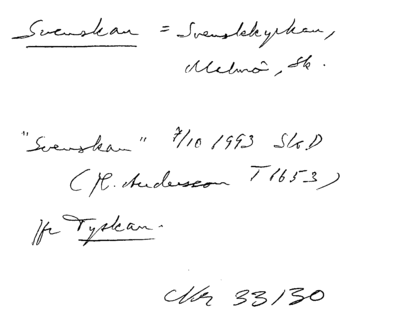 Svenskan = Svenskkyrkan,
Malmö, Sk.
"Svenskan" 7/10 1993 Sk.D
(H. Andersson T1653)
Jfr Tyskan.
Nr 33130